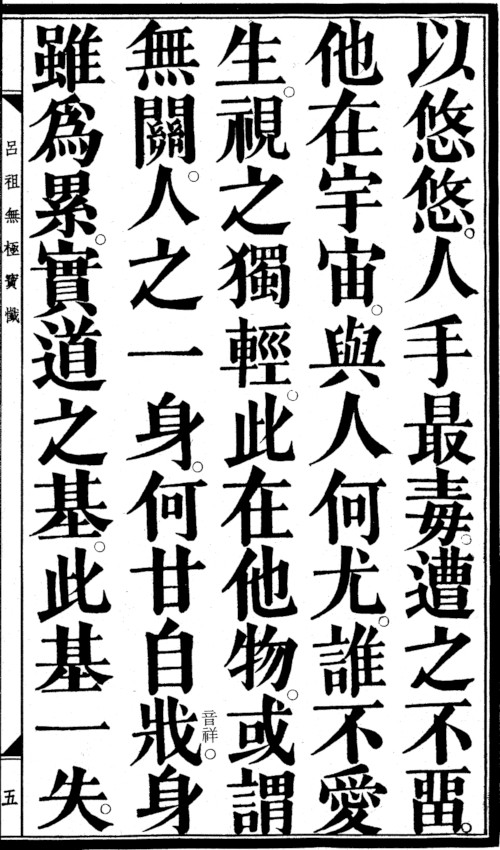 以悠悠。人手最毒。遭之不畱。
他在宇宙。與人何尤。誰不愛
生。視之獨輕。此在他物。或謂
無關。人之一身。何甘自戕音祥。身
雖爲累。實道之基。此基一失。
呂祖無極寶懺
五